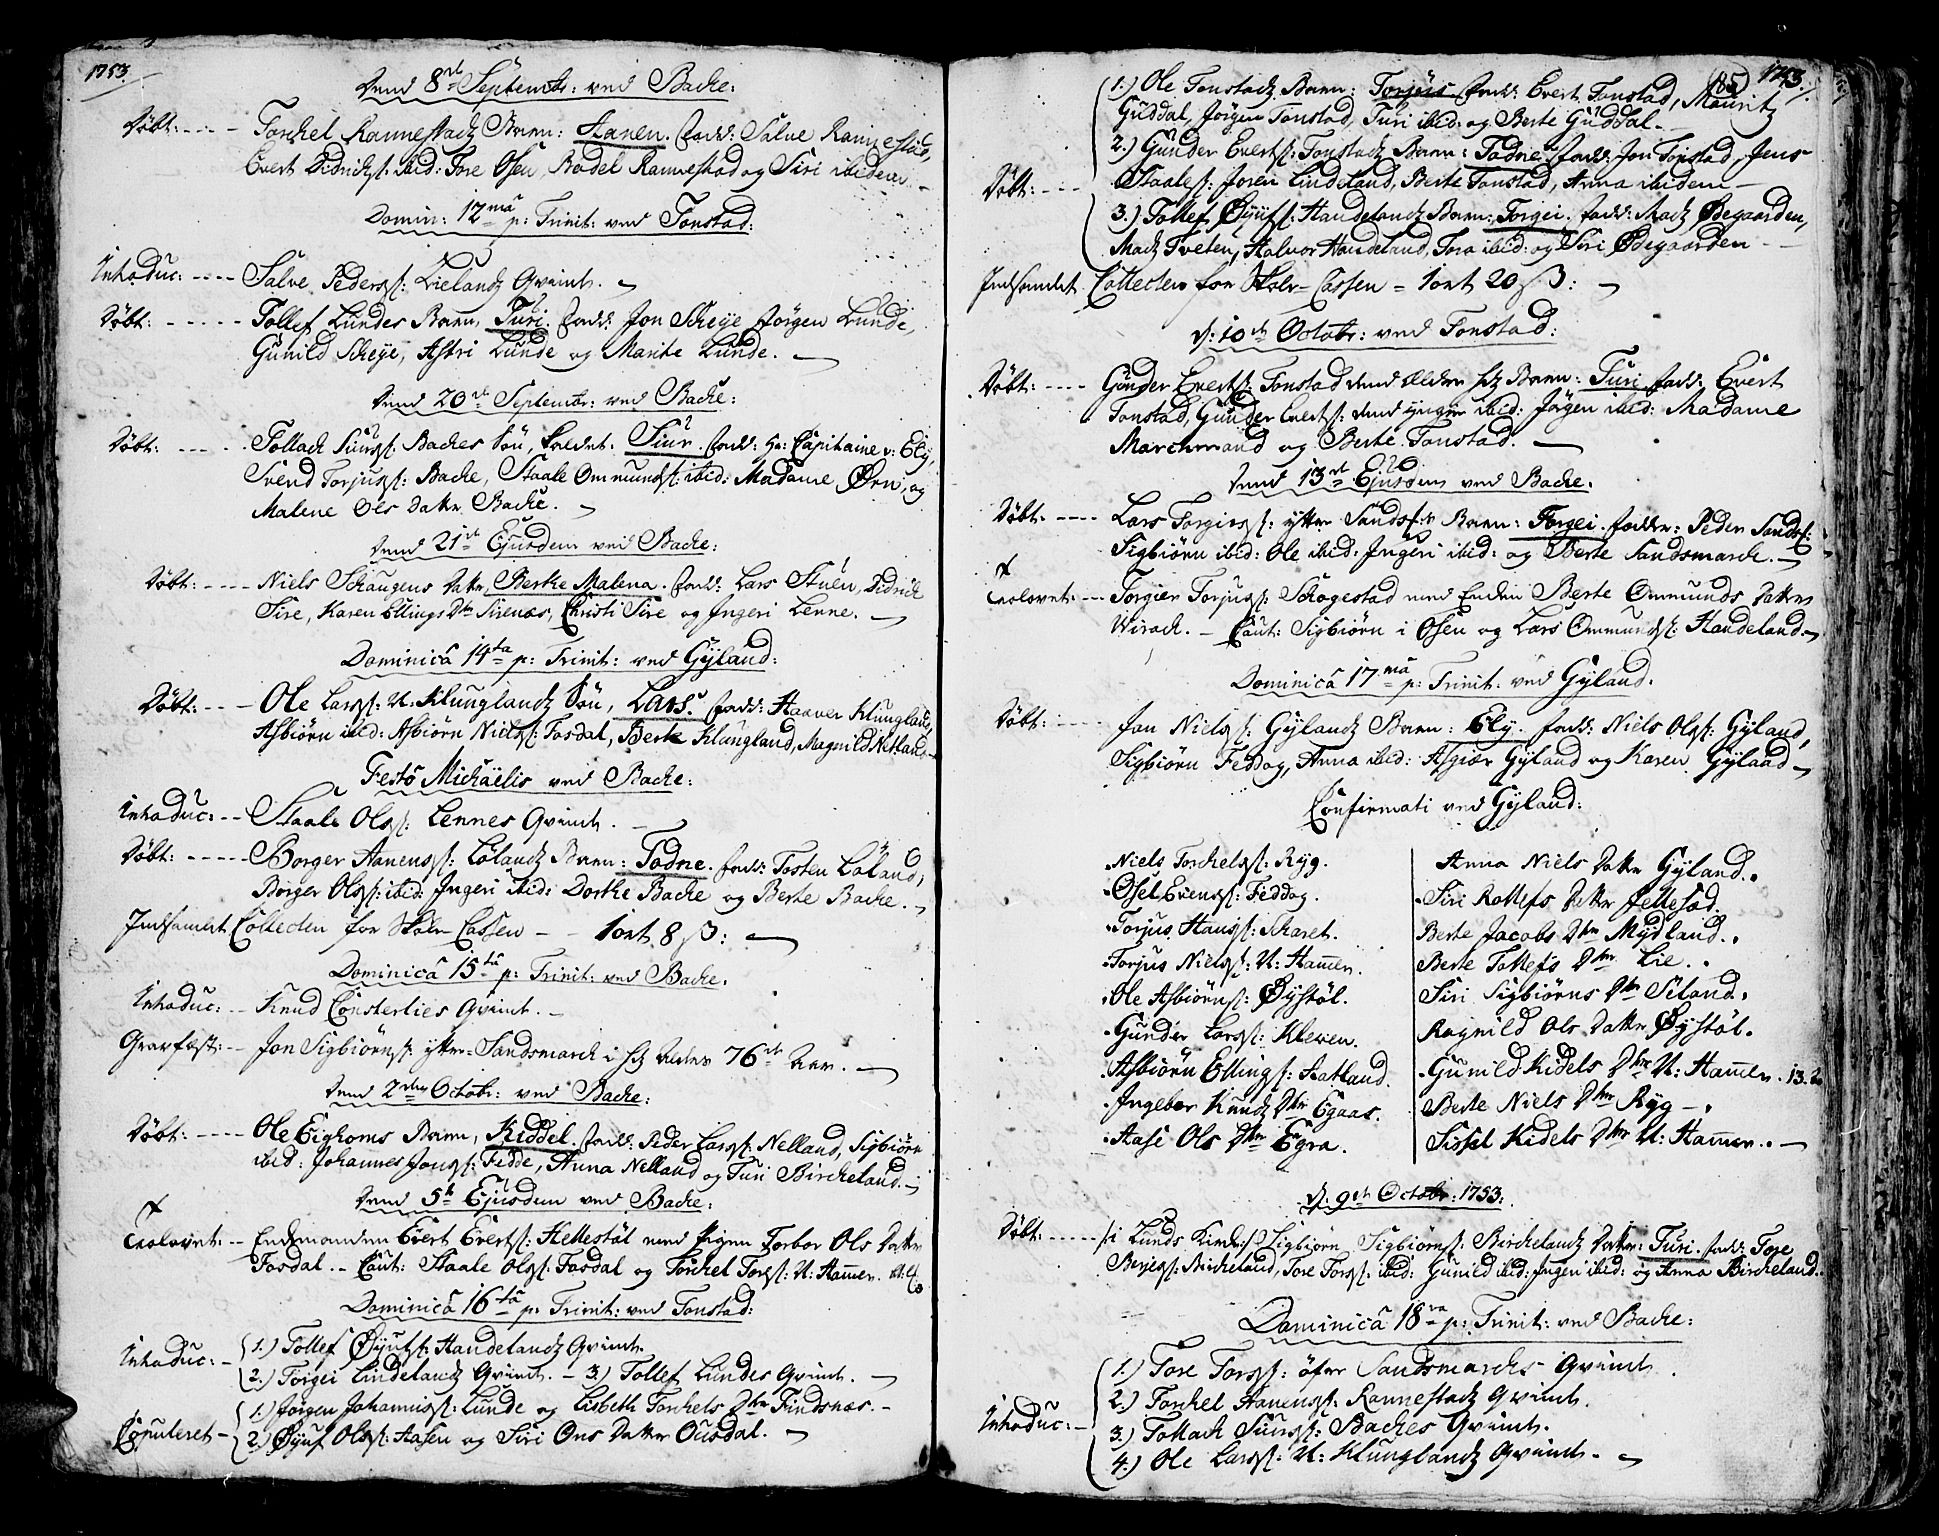 1753.
Dend 8de Septembr: ved Backe:
Døbt: - - - Torchel Rannestadz Barn: Aanen. fadd: Salve Rannestad,
Evert Didrichs: ibid: Tore Osen, Bodel Rannestad og Siri ibidem -
Domin: 12ma p: Trinit: ved Tonstad:
Introduc: - - - - Salve Peders: Lielandz Qvinde.
Døbt: - - - - - Tollef Lundes Barn, Turi. fadd: Jon Scheye Jörgen Lunde,
Gunild Scheye, Astri Lunde og Marite Lunde.
Dend 20de Septembr: ved Backe:
Døbt: - - - - Tollach Siurs: Backes Sön, kaldet. Siur. fadd: Hr: Capitaine v: Ely,
Svend Torjus: Backe, Staale Ommunds: ibid: Madame Ørn, og
Malene Ols Datter Backe.
Dend 21de Ejusdem ved Backe:
Døbt: - - - - Niels Schaugens Datter, Berthe Malena. fadd: Lars Stuen, Didrich
Sire, Karen Ellings Dtr Sirenæs, Christi Sire og Ingeri Lenne.
Dominica 14ta p: Trinit: ved Gyland:
Døbt: - - - Ole Lars: N: Klunglandz Sön, Lars. fadd: Haaver Klungland,
Asbiörn ibid: Asbiörn Niels: Fosdal, Berte Klungland, Magnild Netland
Festo Michaëlis ved Backe:
Introduc: - - Staale Ols: Lennes Qvinde.
Døbt: - - - - - Borger Aanens: Lölandz Barn: Todne. fadd: Tosten Löland,
Borger Ols: ibid: Ingeri ibid: Dorthe Backe og Berte Backe.
Indsamlet Collecten for Skole-Cassen - - 1 ort 8 ß:
Dominica 15ta p: Trinit: ved Backe.
Introduc: - Knud Consterlies Qvinde.
Gravfæst: - Jon Sigbiörns: yttre-Sandsmarck i sit Alders 76de Aar.
Dend 2den Octobr: ved Backe:
Døbt: - - - - Ole Eighoms Barn, Kiddel. fadd: Peder Lars: Nelland, Sigbiörn
ibid: Johannes Jons: Fedde, Anna Nelland og Turi Birckeland.
Dend 5te Ejusdem ved Backe:
Trolovet: - - Enckemanden Evert Everts: Hellestöl med Pigen Torbor Ols Datter
Fosdal. - Caut: Staale Ols: Fosdal og Torchel Tors: N: Hammer.
Dominica 16ta p: Trinit: ved Tonstad:
Introduc: - 1.) Tollef Øyufs: Haudelandz Qvinde.
2.) Torgei Lindelandz Qvinde. - 3.) Tollef Lundes Qvinde.
Copuleret - 1.) Jörgen Johannis: Lunde og Lisbeth Torchels Dtr Findsnæs. -
2.) Øyuf Ols: Aasen og Siri Ons Datter Ousdal.
(85) 1753.
1.) Ole Tonstadz Barn: Torjus. fadd: Evert Tonstad, Mauritz
Guddal, Jörgen Tonstad, Turi ibid: og Berte Guddal.
2.) Gunder Everts: Tonstadz Barn: Todne. fadd: Jon Tonstad, Jens
Døbt: - - - Staales: Joren Lindeland, Berte Tonstad, Anna ibidem -
3.) Tollef Øyufs: Haudelandz Barn: Torgei. fadd: Madz Ødegaarden,
Madz Tveten, Halvor Haudeland, Tora ibid: og Siri Ødegaarden - -
Indsamlet Collecten for Skole-Cassen - 1 ort 20 ß:
d: 10de Octobr: ved Tonstad:
Døbt: - - - - Gunder Everts: Tonstad dend ældre sit Barn: Turi. fadd: Evert
Tonstad, Gunder Everts: dend yngre ibid: Jörgen ibid: Madame
Marchmand og Berte Tonstad.
Dend 13de Ejusdem ved Backe.
Døbt: - - - - Lars Torgiers: yttre Sandsm: Barn: Torgei. fadder: Peder Sandsf:
Sigbiörn ibid: Ole ibid: Ingeri ibid: og Berte Sandsmarck.
Trolovet: - - Torgier Torjus: Schogestad med Encken Berte Ommunds Datter
Wirack. - Caut: Sigbiörn i Osen og Lars Ommunds: Haudeland
Dominica 17ma p: Trinit: ved Gyland.
Døbt: - - - - Jon Niels: Gylandz Barn: Ely. fadd: Niels Ols: Gyland,
Sigbiörn Feddog, Anna ibid: Asgiær Gyland og Karen Gyland
Confirmati ved Gyland:
Niels Torchels: Ryg. Anna Niels Datter Gyland.
Osel Evens: Feddog. Siri Rollefs Datter Jellesod.
Torjus Hans: Scharet. Berte Jacobs Dtr Mydland.
Torjus Niels: N: Hammer. Berte Tollefs Dtr Lie.
Ole Asbiörns: Øystöl. Siri Sigbiörns Dtr Siland.
Gunder Lars: Kleven. Ragnild Ols Datter Øystöl.
Asbiörn Ellings: Aatland. Gunild Kidels Dtr N: Hammer. 13.
Ingebor Knudz Dtr Egaas. Berte Niels Dtr Ryg -
Aase Ols Dtr Egra. Sissel Kidels Dtr N: Hammer.
d. 9de Octobr: 1753:
Døbt: - - - - /:i Lunds Kirche:/ Sigbiörn Sigbiörns: Birckelandz Datter: Turi. fadd: Tore
Berjes: Birckeland, Tore Tors: ibid: Gunild ibid: Ingeri ibid: og Anna Birckeland.
Dominica 18va p: Trinit: ved Backe:
1.) Tore Tors: öfre Sandsmarchs Qvinde.
2.) Torkel Aanens: Rannestadz Qvinde.
Introduc: - 3.) Tollach Siurs: Backes Qvinde.
4.) Ole Lars: N: Klunglandz Qvinde.